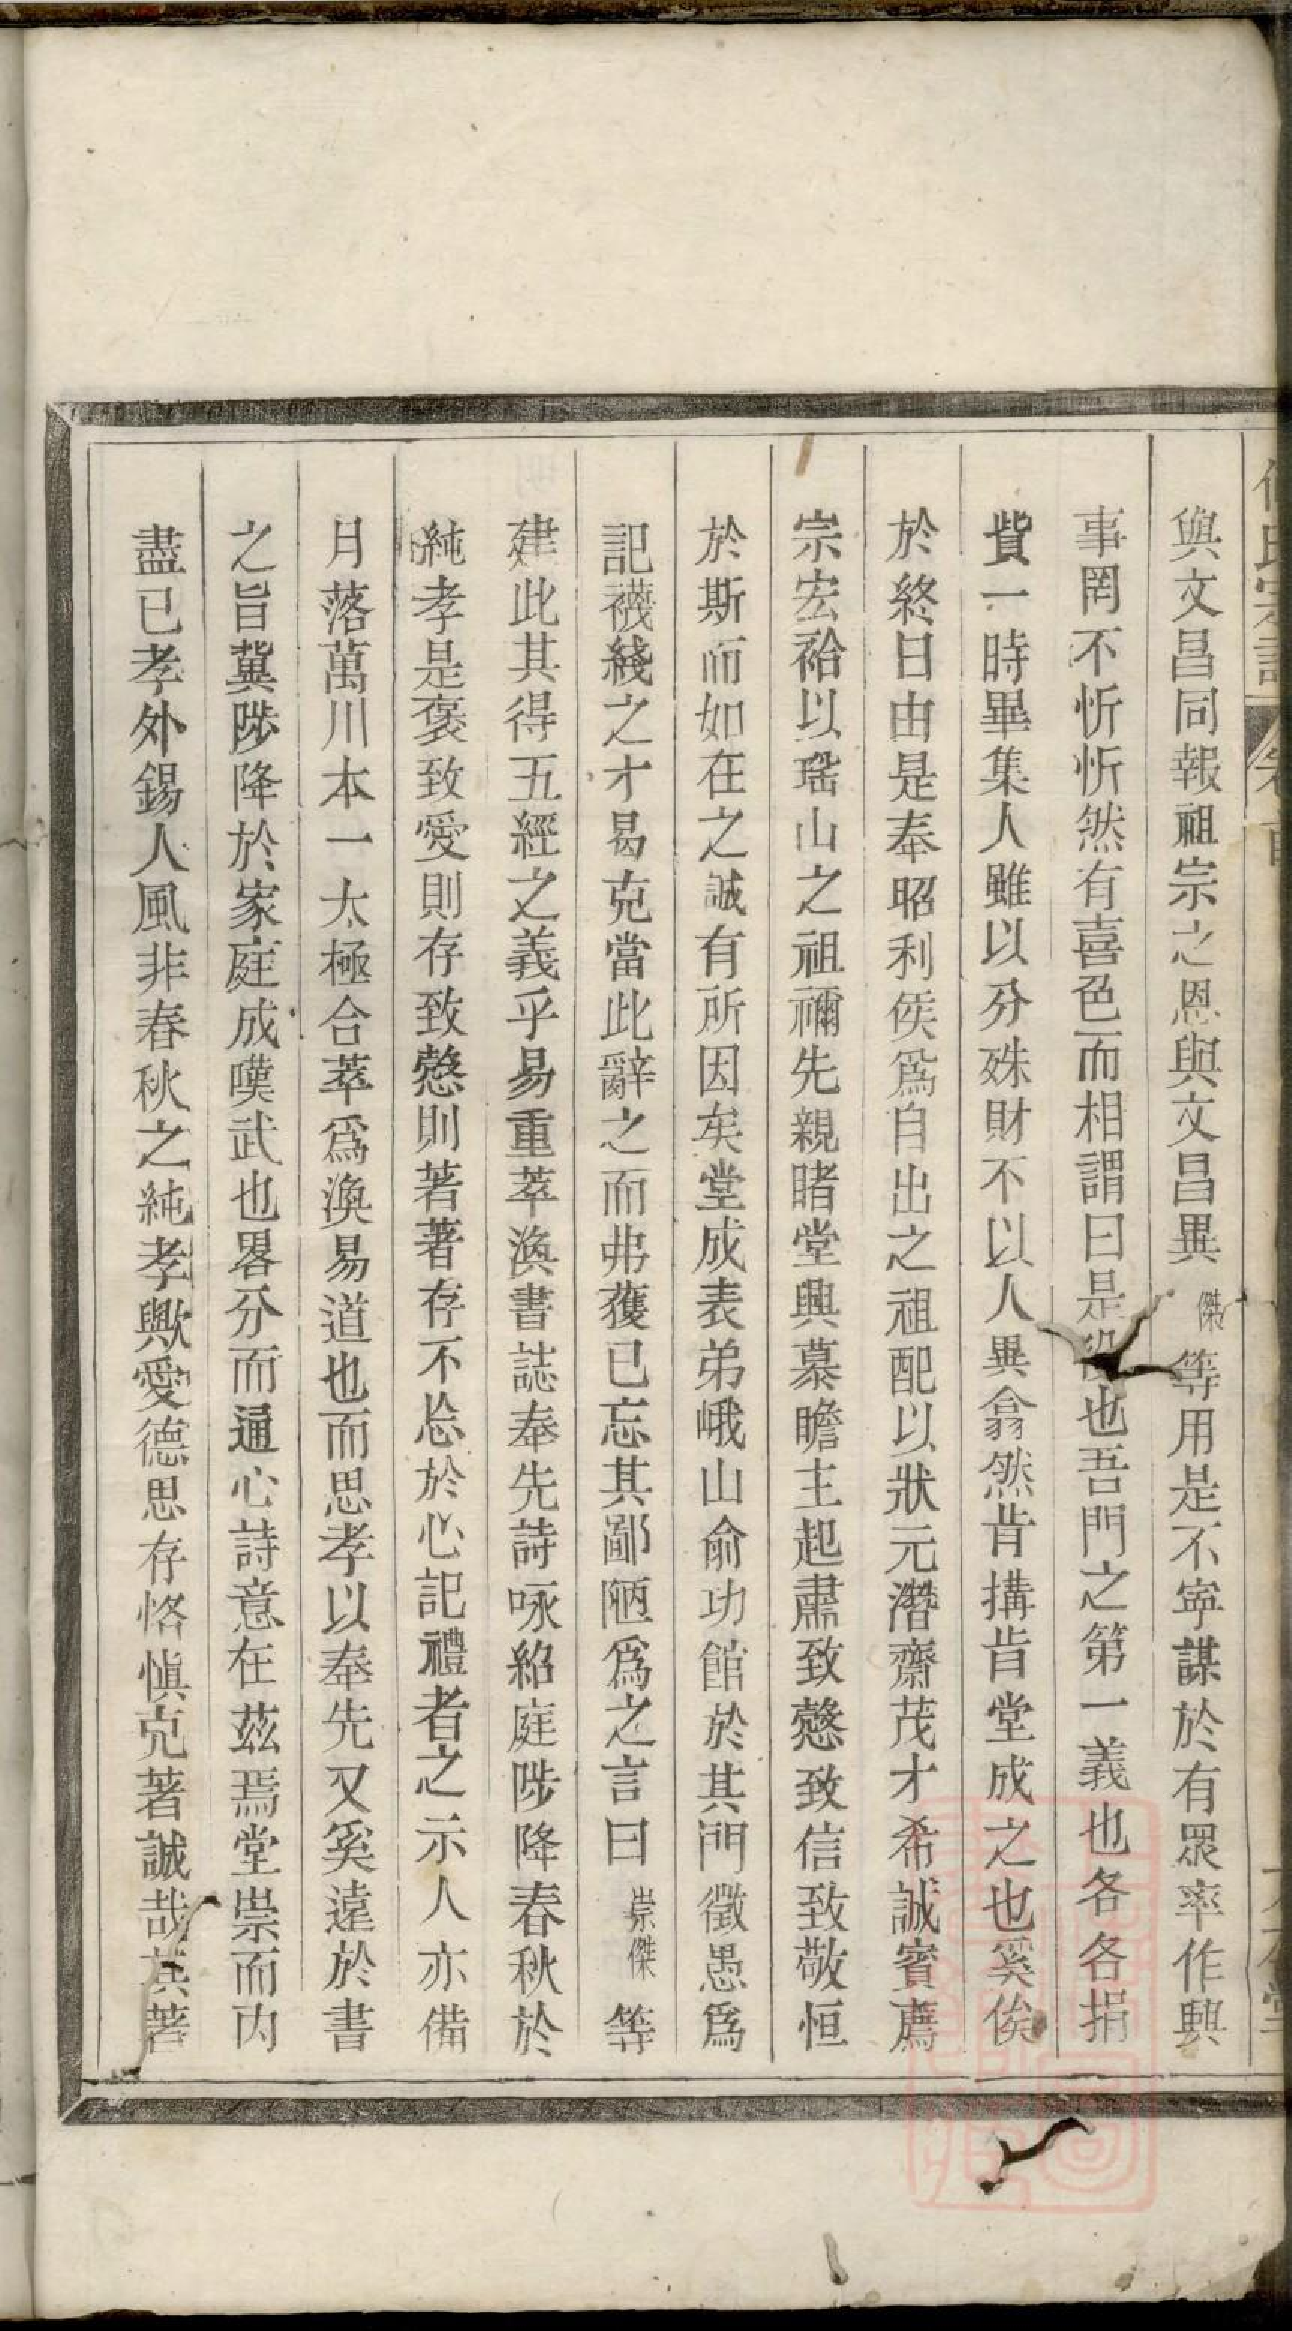 與文昌同報祖宗之恩與文昌異傑等用是不寧謀於有眾率作興
事罔不忻忻然有喜色而相謂曰是也吾門之第一義也各各捐
貲一時畢集人雖以分殊財不以人異翕然肯搆肯堂成之也奚俟
於終日由是奉昭利侯爲自出之祖配以狀元潛齋茂才希誠賓薦
宗宏祫以瑶山之祖禰先親睹堂興慕瞻主起肅致慤致信致敬恒
於斯而如在之誠有所因矣堂成表弟峨山俞功館於其門徵愚爲
記襪綫之才曷克當此辭之而弗獲已忘其鄙陋爲之言曰崇傑等
建此其得五經之義乎易重萃渙書誌奉先詩咏紹庭陟降春秋於
純孝是褒致愛則存致慤則著著存不忘於心記禮者之示人亦備
月落萬川本一太極合萃爲渙易道也而思孝以奉先又奚遠於書
之旨冀陟降於家庭成嘆武也畧分而通心詩意在茲焉堂崇而内
盡已孝外錫人風非春秋之純孝歟愛德思存恪慎克著誠哉其著